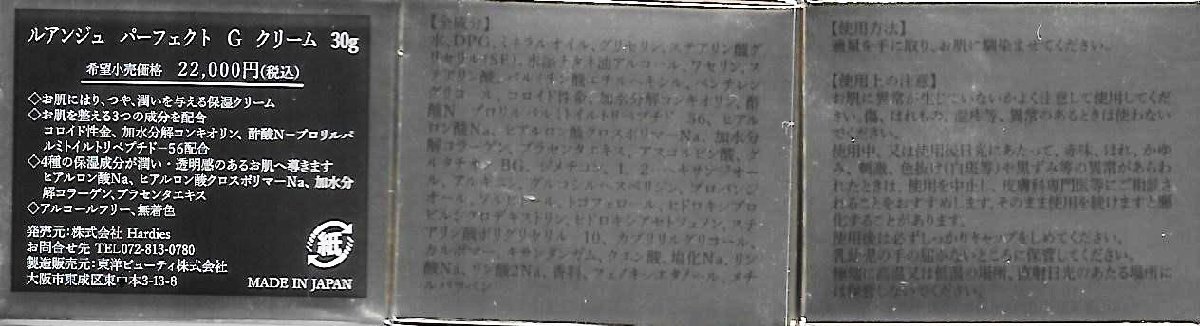 ルアンジュ パーフェクト G クリーム 30g
希望小売価格 22,000円(税込)
◇お肌にはり、つや、潤いを与える保湿クリーム
◇お肌を整える3つの成分を配合
コロイド性金、加水分解コンキオリン、酢酸N-プロリルパ
ルミトイルトリペプチド-56配合
◇4種の保湿成分が潤い・透明感のあるお肌へ導きます
ヒアルロン酸Na、ヒアルロン酸クロスポリマーNa、加水分
解コラーゲン、プラセンタエキス
◇アルコールフリー、無着色
発売元:株式会社 Hardies
お問合せ先 TEL072-813-0780
製造販売元:東洋ビューティ株式会社
大阪市東成区東中本3-13-8
紙
MADE IN JAPAN
【全成分】
水、DPG、ミネラルオイル、グリセリン、ステアリン酸グ
リセリル(SE)、水添ナタネ油アルコール、ワセリン、ス
テアリン酸、パルミチン酸エチルヘキシル、ペンチレング
リコール、コロイド性金、加水分解コンキオリン、酢
酸N-プロリルパルミトイルトリペプチド-56、ヒアル
ロン酸Na、ヒアルロン酸クロスポリマーNa、加水分
解コラーゲン、プラセンタエキス、アスコルビン酸、グ
ルタチオン、BG、ジメチコン、1,2-
カルボマー、キサンタンガム、クエン酸、
酸Na、香料、フェノキシエタノール、
【使用方法】
適量を手に取り、お肌に馴染ませてください。
【使用上の注意】
お肌に異常が生じていないかよく注意して使用してくだ
さい。傷、はれもの、湿疹等、異常のあるときは使わない
でください。
使用中、又は使用後日光にあたって、赤味、はれ、かゆ
み、刺激、色抜け(白斑等)や黒ずみ等の異常があらわ
れたときは、使用を中止し、皮膚科専門医等にご相談さ
れることをおすすめします。そのまま使用を続けますと悪
化することがあります。
使用後は必ずしっかりキャップをしめてください。
乳幼児の手の届かないところに保管してください。
極端に高温又は低温の場所、直射日光のあたる場所に
は保管しないでください。